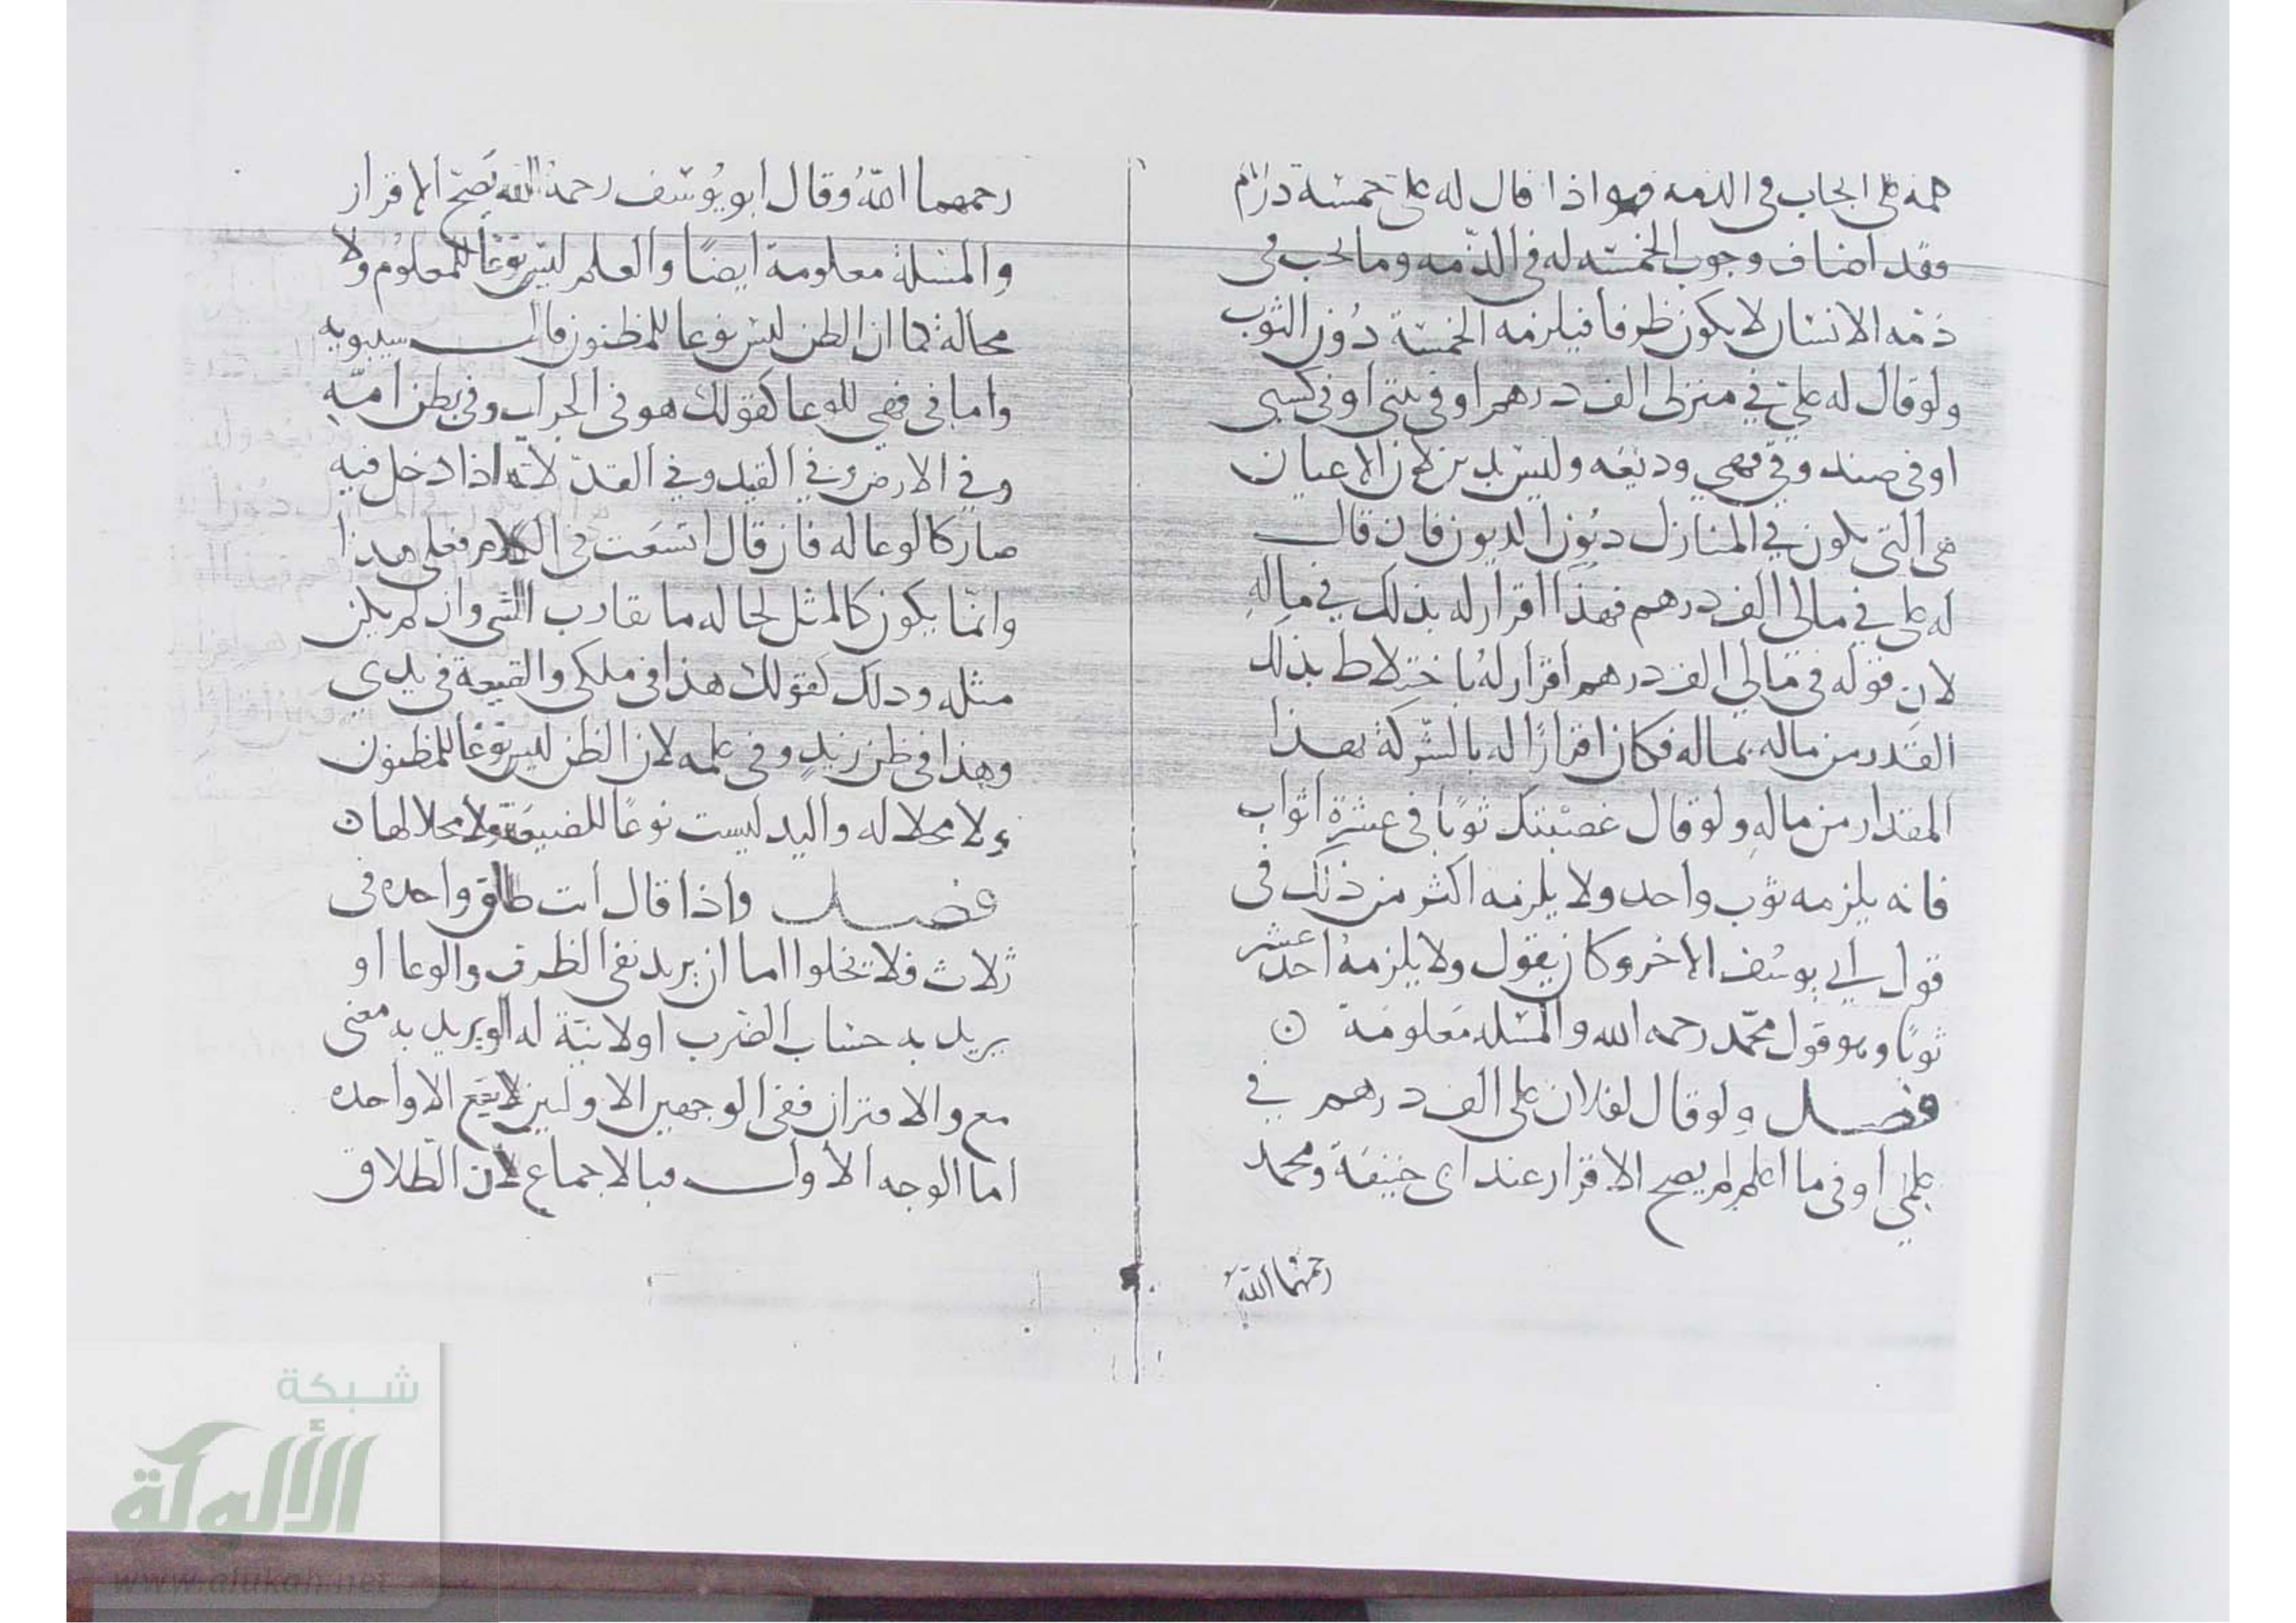 كلمة على ايجاب في الذمه فهو اذا قال له علىّ خمسة دراهم
فقد اضاف وجوب الخمسه له في الذّمه وما يجب في
ذمّه الانسان لا يكون ظرفا فيلزمه الخمسة دُون الثوب
ولو قال له علىّ في منزلى الف درهم او في بيتى او في كيسى
او في صندوقي فهي وديعه وليس بدين لان الاعيان
هى التى يكون في المنازل دُون الديون فان قال
له على في مالى الف درهم فهذا اقرار له بذلك في مالهِ
لان قوله في مالى الف درهم اقرار لهُ باختلاط بذلك
القدر من ماله بماله فكان اقرارًا له بالشركة بهذا
المقدار من مالهِ ولو قال غصبتك ثوبًا في عشرة اثواب
فانه يلزمه ثوب واحد ولا يلزمه اكثر من ذلك في
قول ابي يوسُف الاخر وكان يقول ولا يلزمهُ احد عشر
ثوبًا وهو قول محمّد رحمه الله والمسٔله مَعلومَة ن
فصل ولو قال لفلان على الف درهم في
علمي او في ما اعلم لم يصح الاقرار عند ابى حنيفة ومحمد
رحمهُما اللهُ
رحمهما اللهُ وقال ابو يُوسف رحمهُ الله يَصحّ الاقرار
والمسٔلة معلومة ايضًا والعلم ليس نوعًا للمعلوُم ولا
محالة كما ان الظن ليس نوعا للمظنون قال سيبويه
واما في فهي للوعا كقولك هو في الجراب وفي بطن امّهِ
وفي الارض وفي القيد وفي القدّ لانّه اذا دخل فيه
صار كالوعا له فان قال اتسَعت في الكلام فعلى هذا
وانمّا يكون كالمثل لحاله ما يقارب الشى وان لم يكن
مثله وذلك كقولك هذا في ملكى والضيعة في يدي
وهذا في ظن زيدٍ وفي علمه لان الظن ليس نوعًا للمظنون
ولا محلا له واليد ليست نوعًا للضيعَة ولا محلا لها ن
فصل واذا قال انت طالق واحده في
ثلاث فلا يخلوا اما ان يريد نفي الظرف والوعا او
يريد به حساب الضرب او لا نيّة له او يريد به معنى
مع والاقتران ففي الوجهين الاولين لا يقع الا واحده
اما الوجه الاول فبالاجماع لان الطّلاق
شبكة
الألوكة
www.alukah.net